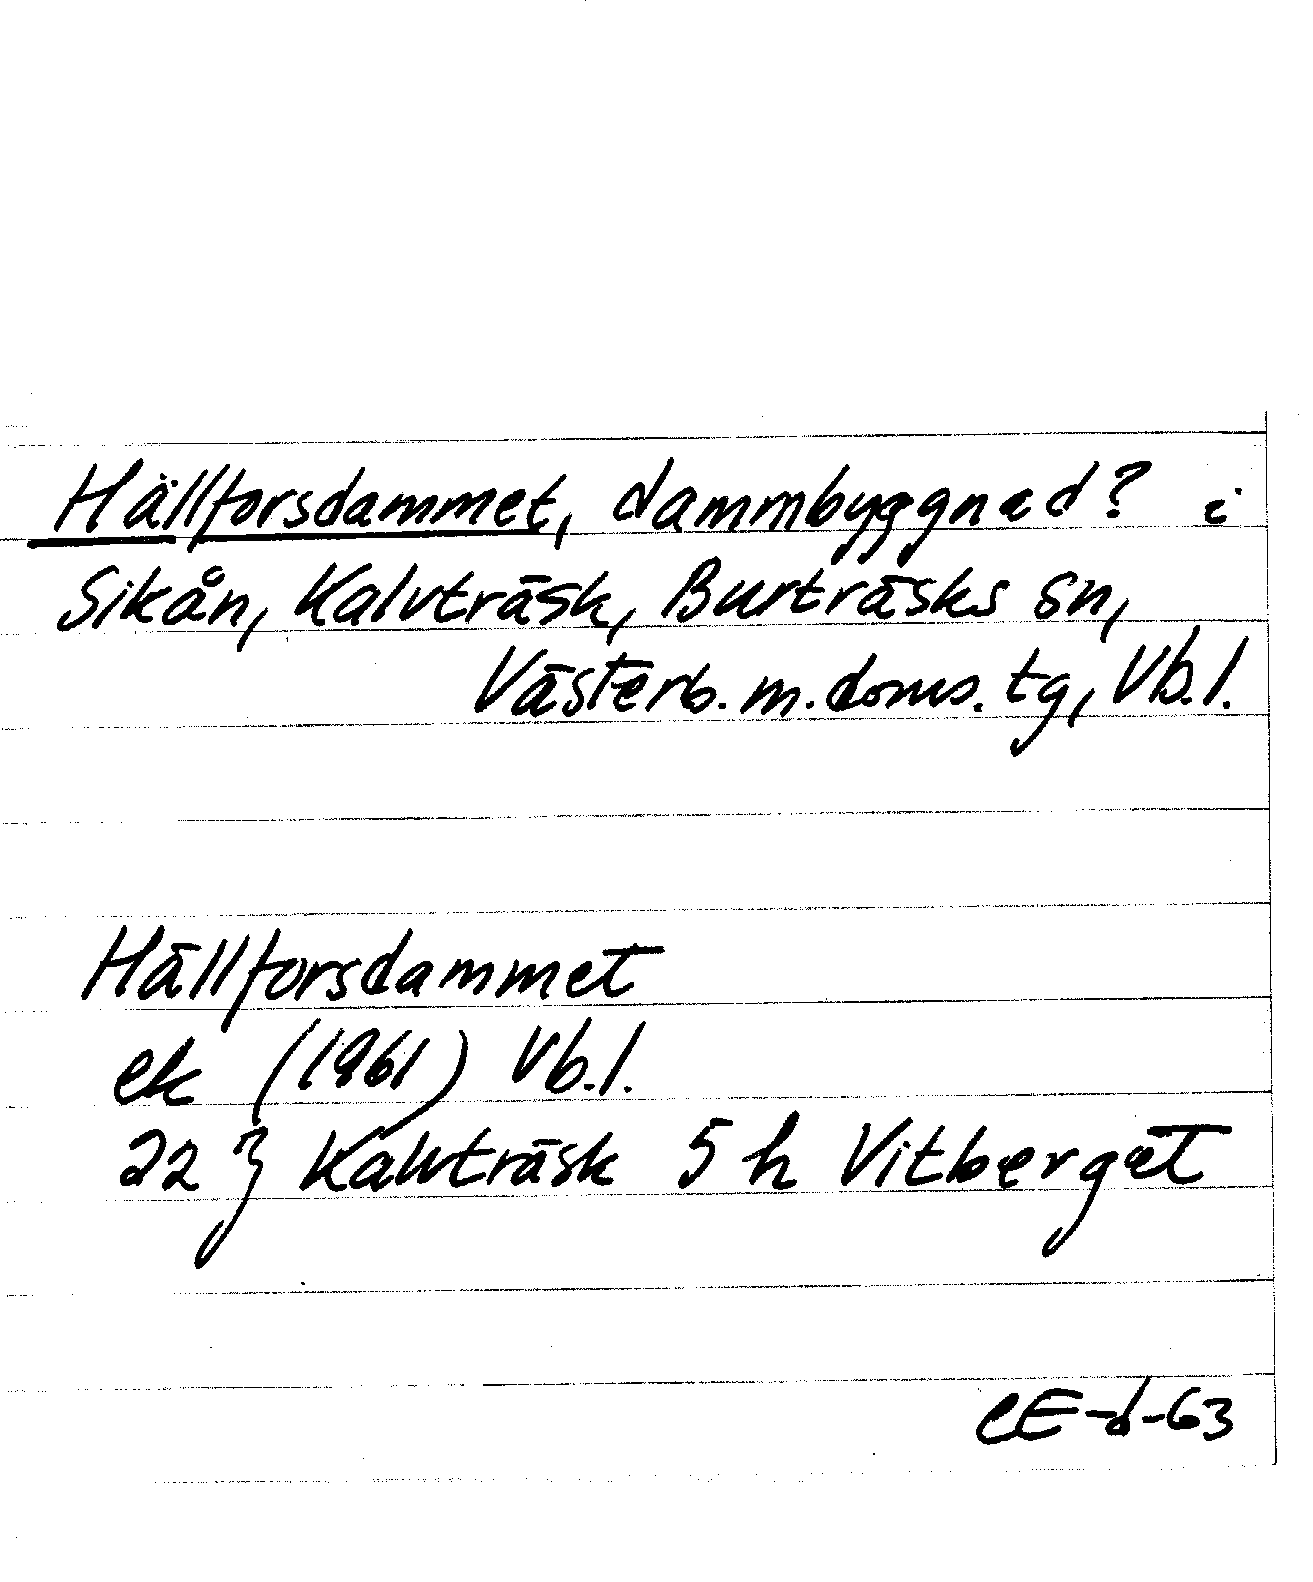 Hällforsdammet, dammbyggnad? i
Sikån, Kalvträsk, Burträsks sn,
Västerb. m. doms. tg, Vb.l.
Hällforsdammet
ek (1961) Vb.l.
22 J Kalvträsk 5 h Vitberget
CE-d-63